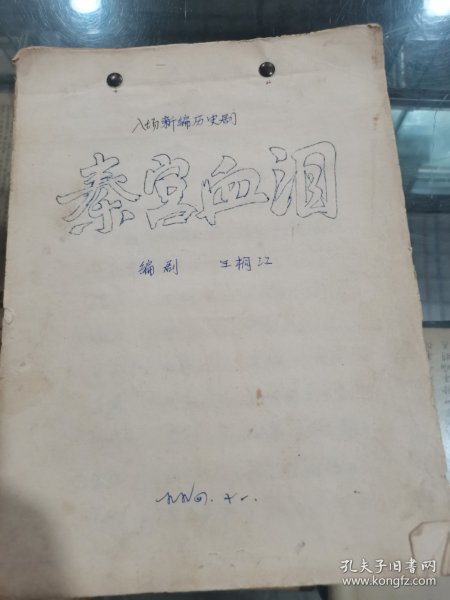 八场新编历史剧
秦宫血泪
编� 王桐江
一九九四.十一.
孔夫子旧书网
www.kongfz.com